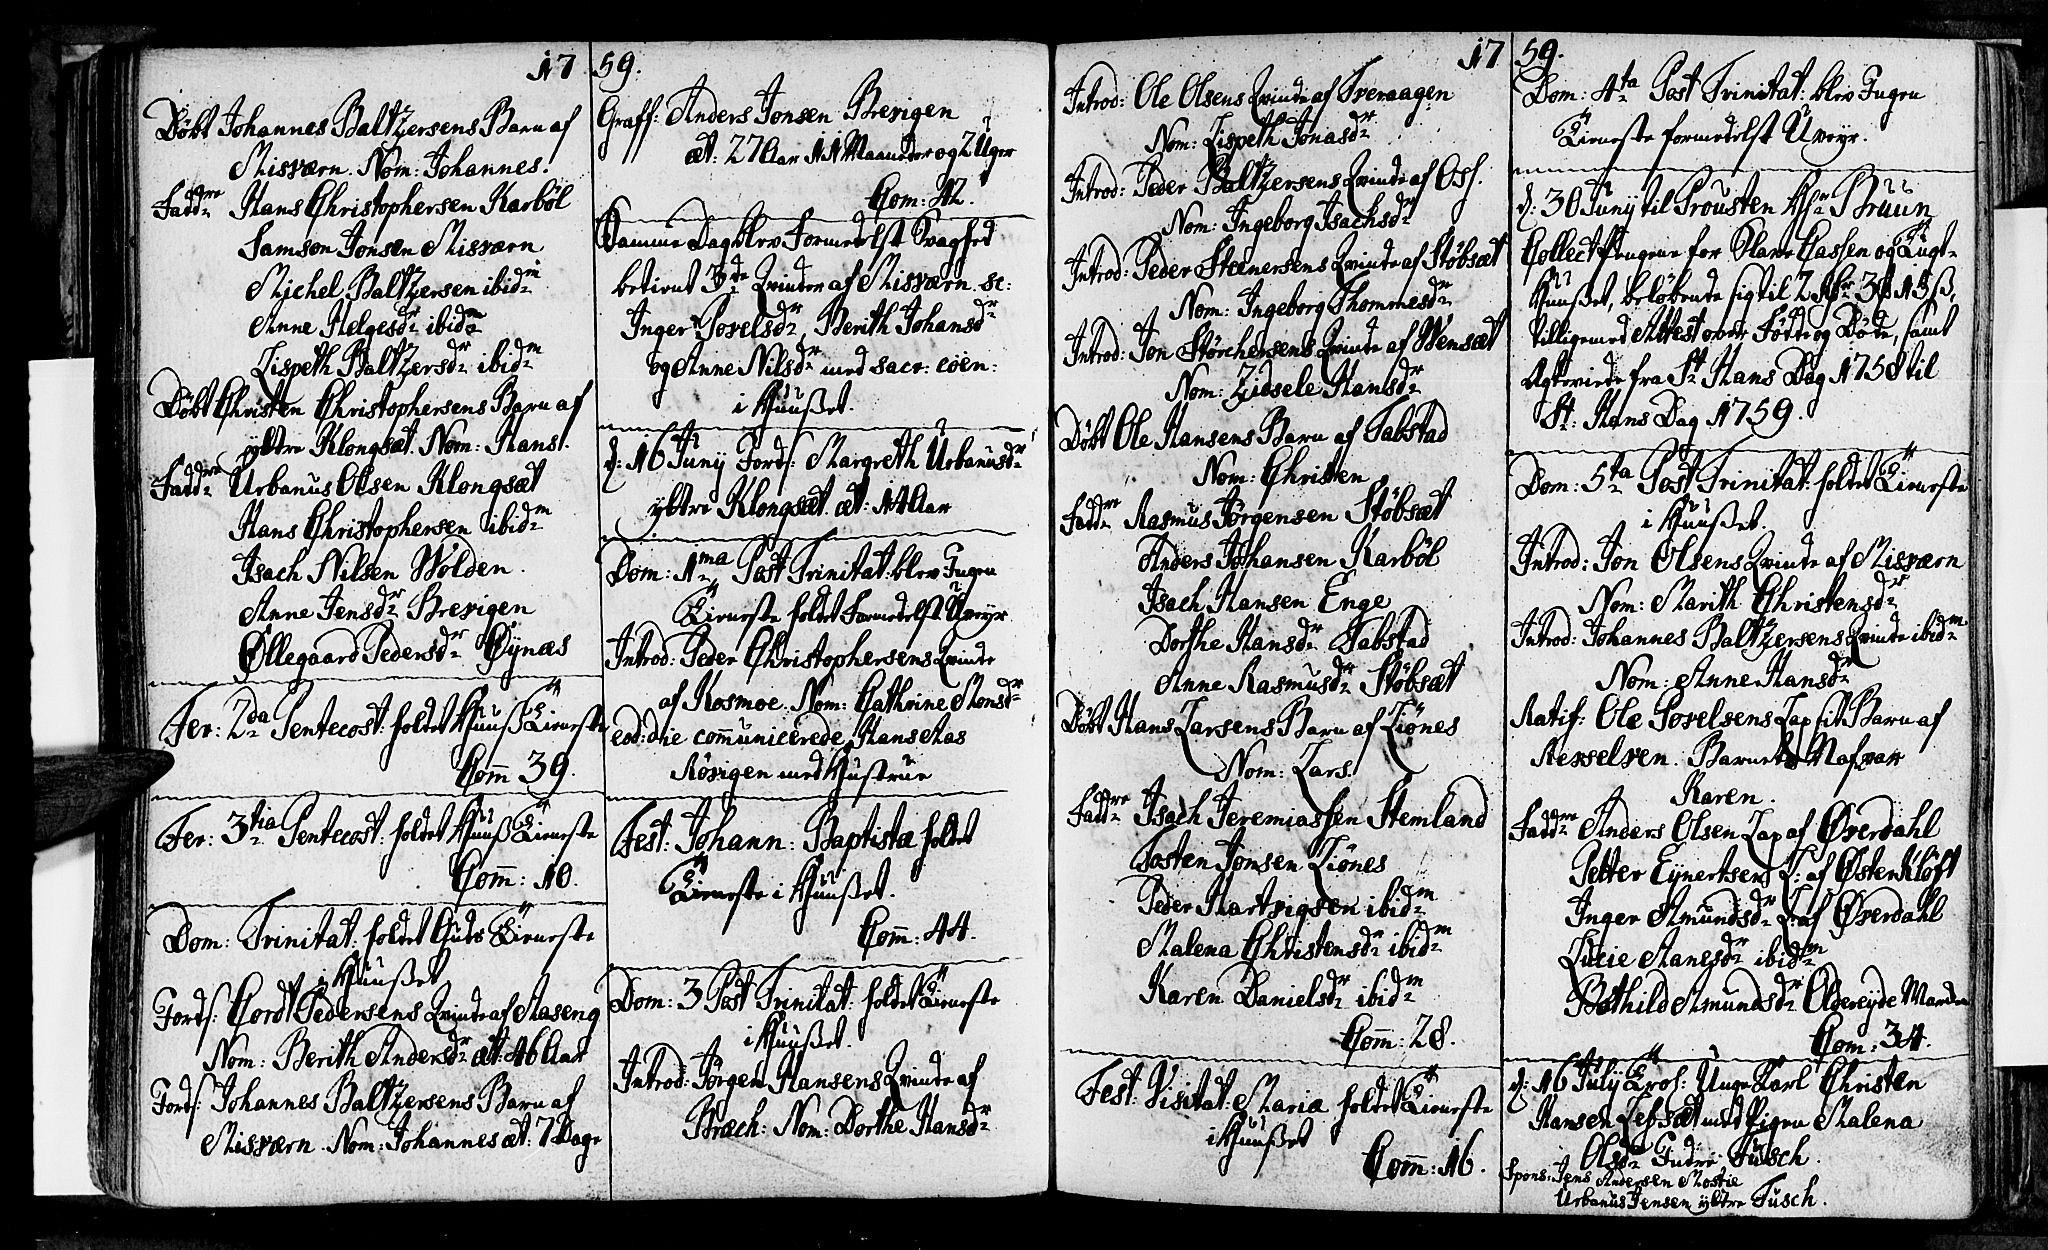 17 59.
Døbt Johannes Baltzersens Barn af
Misværn. Nom: Johannes.
Faddre Hans Christophersen Karbøl
Samson Jonsen Misværn
Michel Baltzersen ibidm
Anne Helgesdr ibidm
Lispeth Baltzersdr ibidm
Døbt Christen Christophersens Barn af
ybtre Klongsæt. Nom: Hans.
Faddre Urbanus Olsen Klongsæt
Hans Christophersen ibidm
Isach Nilsen Wolden.
Anne Jensdr Brevigen
Øllegaard Pedersdr Øynæs
Fer: 2da Pentecost: holdet Huuß Tieneste
Comm 39.
Fer: 3tia Pentecost: holdet Huuß Tieneste
Comm: 10.
Dom: Trinitat: holdet Guds Tieneste
i Huußet
Jords: Cordt Pedersens Qvinde af Aaseng
Nom: Berith Andersdr æt: 46 Aar
Jords: Johannes Baltzersens Barn af
Misværn. Nom: Johannes æt: 7 Dage
Graff: Anders Jonsen Brevigen
æt: 27 Aar 11 Maaneder og 2 Uger
Com: 12.
Samme Dag blev formedelst Svaghed
betient 3de Qvinder af Misværn sc:
Inger Povelsdr, Berith Johansdr
og Anne Nilsdr med sacr: coen:
i Huußet.
d: 16 Juny Jords: Margreth Urbanusdr
ybtre Klongsæt æt: 14 Aar
Dom: 1ma Post Trinitat: blev Ingen
Tieneste holdet formedelst Uveyr
Introd: Peder Christophersens Qvinde
af Kosmoe. Nom: Cathrine Monsdr
eod: die communicerede Hans Aas
Røsvigen med Hustrue
Fest: Johann: Baptistæ holdet
Tieneste i Huußet.
Comm: 44.
Dom: 3 Post Trinitat: holdet Tieneste
i Huußet.
Introd: Jørgen Hansens Qvinde af
Bræch: Nom: Dorthe Hansdr
17 59.
Introd: Ole Olsens Qvinde af Tveraagen
Nom: Lispeth Jonasdr
Introd: Peder Baltzersens Qvinde af Oss.
Nom: Ingeborg Isachsdr
Introd: Peder Steenersens Qvinde af Støbsæt
Nom: Ingeborg Thommesdr
Introd: Jon Størchersens Qvinde af Wensæt
Nom: Zidsele Hansdr
Døbt Ole Hansens Barn af Tabstad
Nom: Christen
Faddre Rasmus Jørgensen Støbsæt
Anders Johansen Karbøl
Isach Hansen Enge
Dorthe Hansdr Tabstad
Anne Rasmusdr Støbsæt
Døbt Hans Larsens Barn af Liønes
Nom: Lars.
Faddre Isach Jeremiassen Stemland
Tosten Jonsen Liønes
Peder Hartvigsen ibidm
Malena Christensdr ibidm
Karen Danielsdr ibidm
Comm: 28.
Fest: Visitat: Maria holdet Tieneste
i Huußet
Comm: 16.
Dom: 4ta Post Trinitat: blev Ingen
Tieneste formedelst Uveyr.
d: 30 Juny til Prousten Hr Bruun
Collect Pengene for Slave Cassen og Tugt-
Huußet, beløbende sig til 2 Rdr 3 15 ß,
tilligemed Attest over Fødde og Døde, samt
Ægteviede fra St Hans Dag 1758 til
St: Hans Dag 1759.
Dom: 5ta Post Trinitat: holdet Tieneste
i Huußet.
Introd: Jon Olsens Qvinde af Misværn
Nom: Marith Christensdr
Introd: Johannes Baltzersens Qvinde ibidm
Nom: Anne Hansdr
Ratif: Ole Povelsens Lap sit Barn af
Nevselven. Barnets Nafn var
Karen.
Faddre Anders Olsen Lap af Øverdahl
Petter Eynertsen L: af Østerkløft
Inger Amundsdr L: af Øverdahl
Lucie Hansdr ibidm
Bothild Amundsdr Oldereyde Marken
Com: 34.
d: 16 July Trol: Unge Karl Christen
Hansen Lebsæt med Pigen Malena
Olsdr Indre Fusch.
Spons: Jens Andersen Mostie
Urbanus Jensen ybtre Fusch.